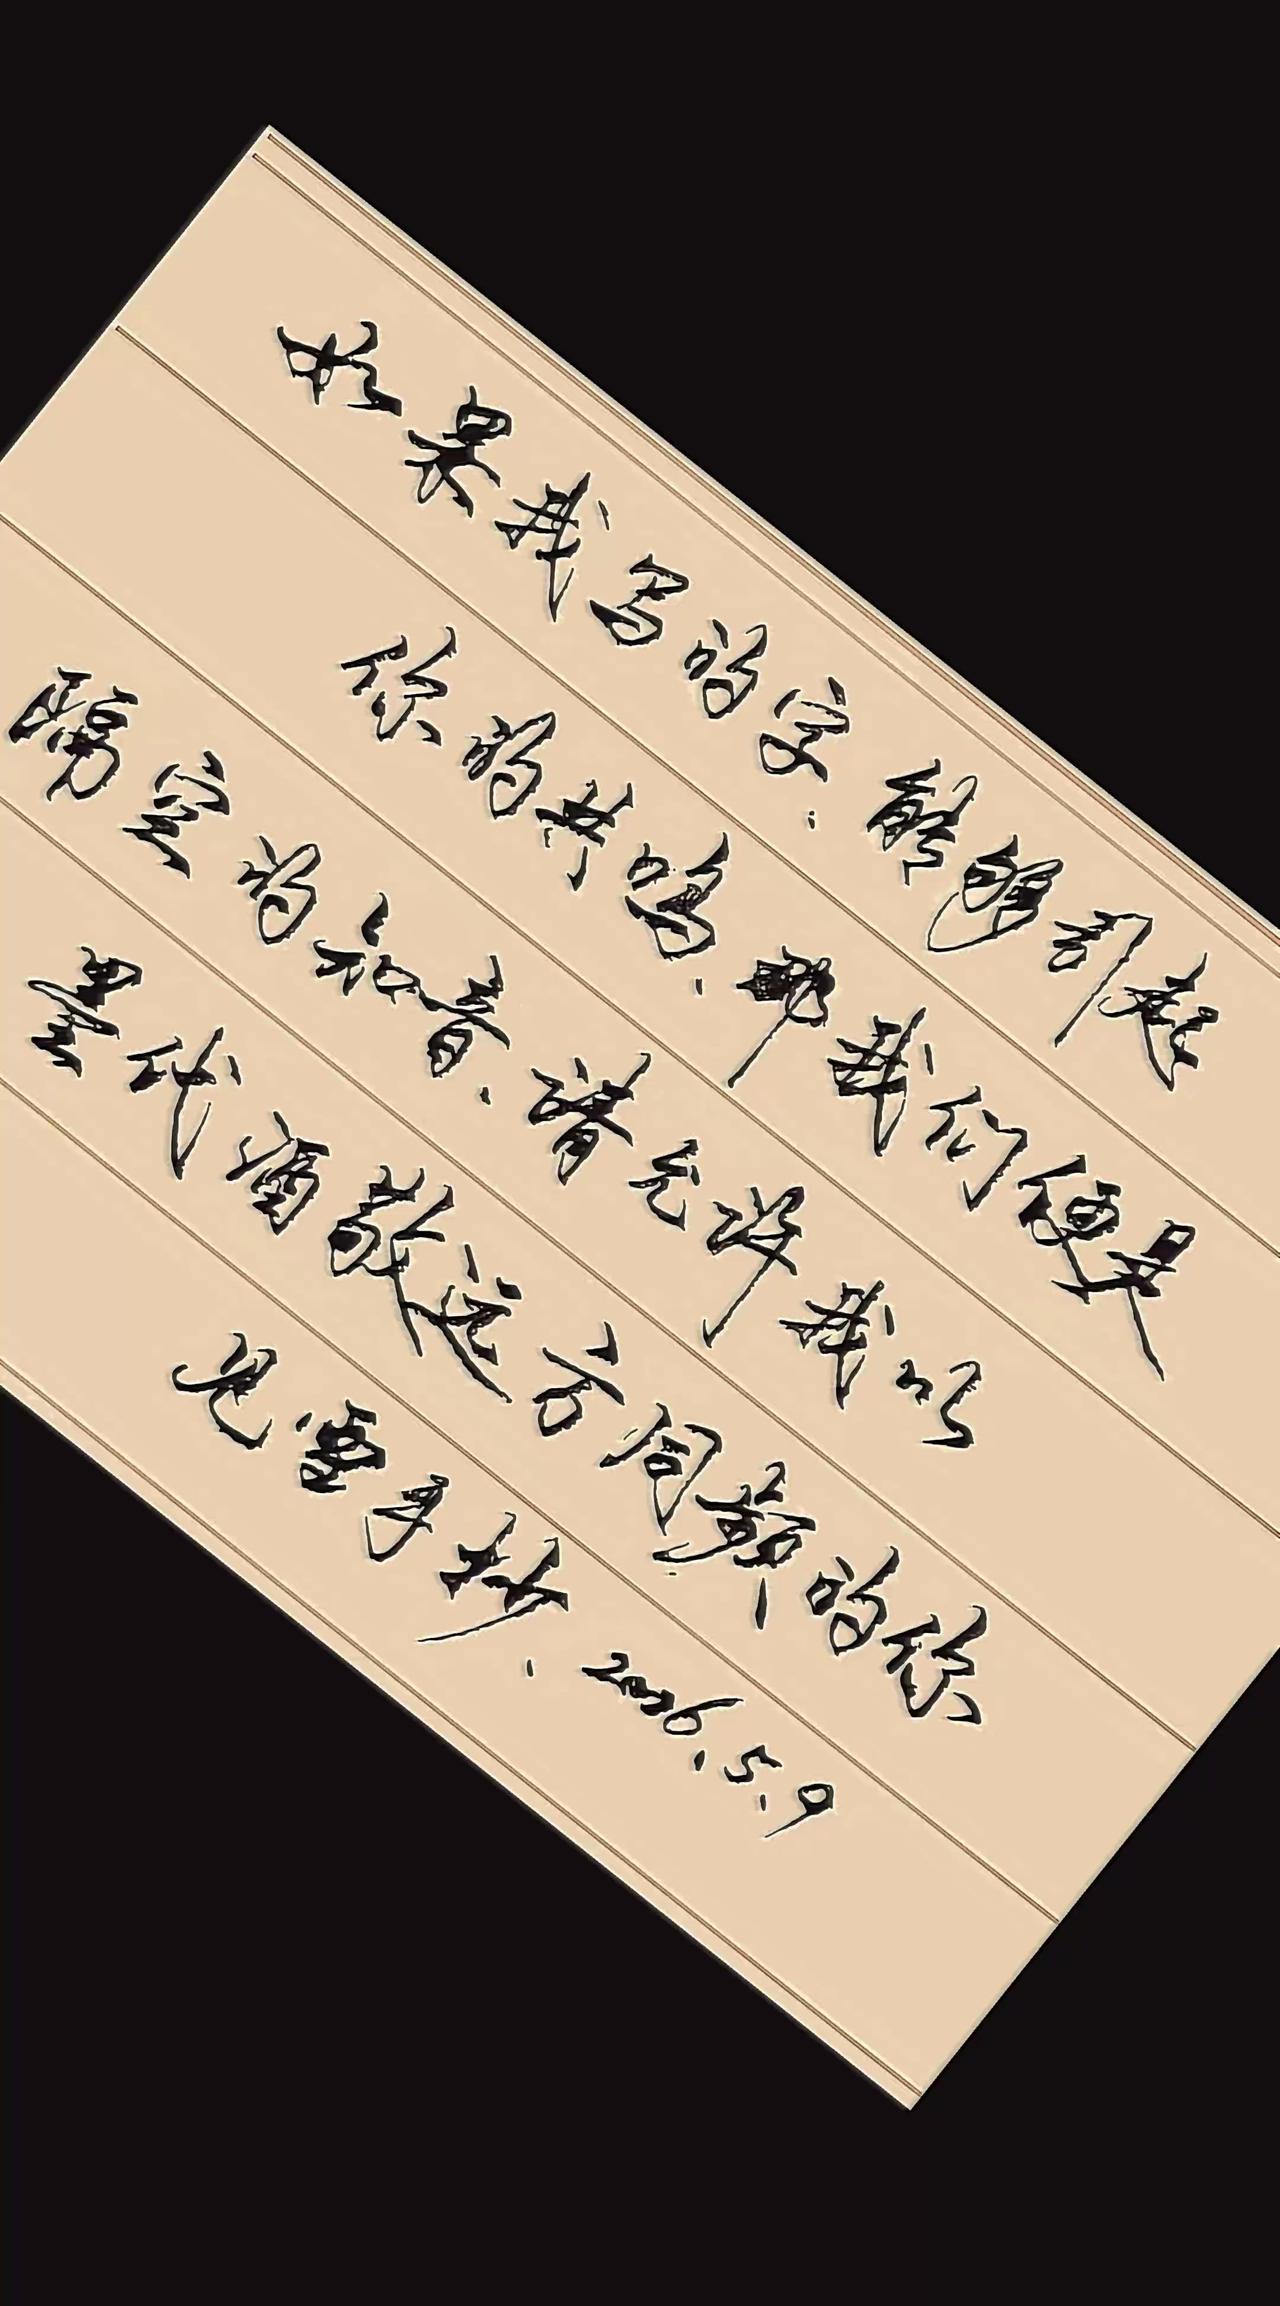 如果我写的字、能够引起
你的共鸣、那我们便是
隔空的知音、请允许我以
墨代酒敬远方同频的你
见雪手抄、2026.5.9